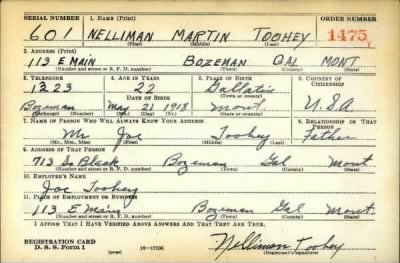 SERIAL NUMBER 1. NAME (Print) ORDER NUMBER
601 NELLIMAN MARTIN TOOHEY 1475
(First) (Middle) (Last)
2. ADDRESS (Print)
113 E MAIN BOZEMAN GAL MONT
(Number and street or R. F. D. number) (Town) (County) (State)
3. TELEPHONE 4. AGE IN YEARS 5. PLACE OF BIRTH 6. COUNTRY OF CITIZENSHIP
1323 22 Gallatin
DATE OF BIRTH (Town or county)
Bozeman May 21 1918 Mont. U.S.A
(Exchange) (Number) (Mo.) (Day) (Yr.) (State or country)
7. NAME OF PERSON WHO WILL ALWAYS KNOW YOUR ADDRESS 8. RELATIONSHIP OF THAT PERSON
Mr Joe Toohey Father
(Mr., Mrs., Miss) (First) (Middle) (Last)
9. ADDRESS OF THAT PERSON
713 So Black Bozeman Gal Mont
(Number and street or R. F. D. number) (Town) (County) (State)
10. EMPLOYER'S NAME
Joe Toohey
11. PLACE OF EMPLOYMENT OR BUSINESS
113 E Main Bozeman Gal Mont.
(Number and street or R. F. D. number) (Town) (County) (State)
I AFFIRM THAT I HAVE VERIFIED ABOVE ANSWERS AND THAT THEY ARE TRUE.
REGISTRATION CARD
D. S. S. Form 1 (over) 16—17105 Nelliman Toohey
(Registrant's signature)